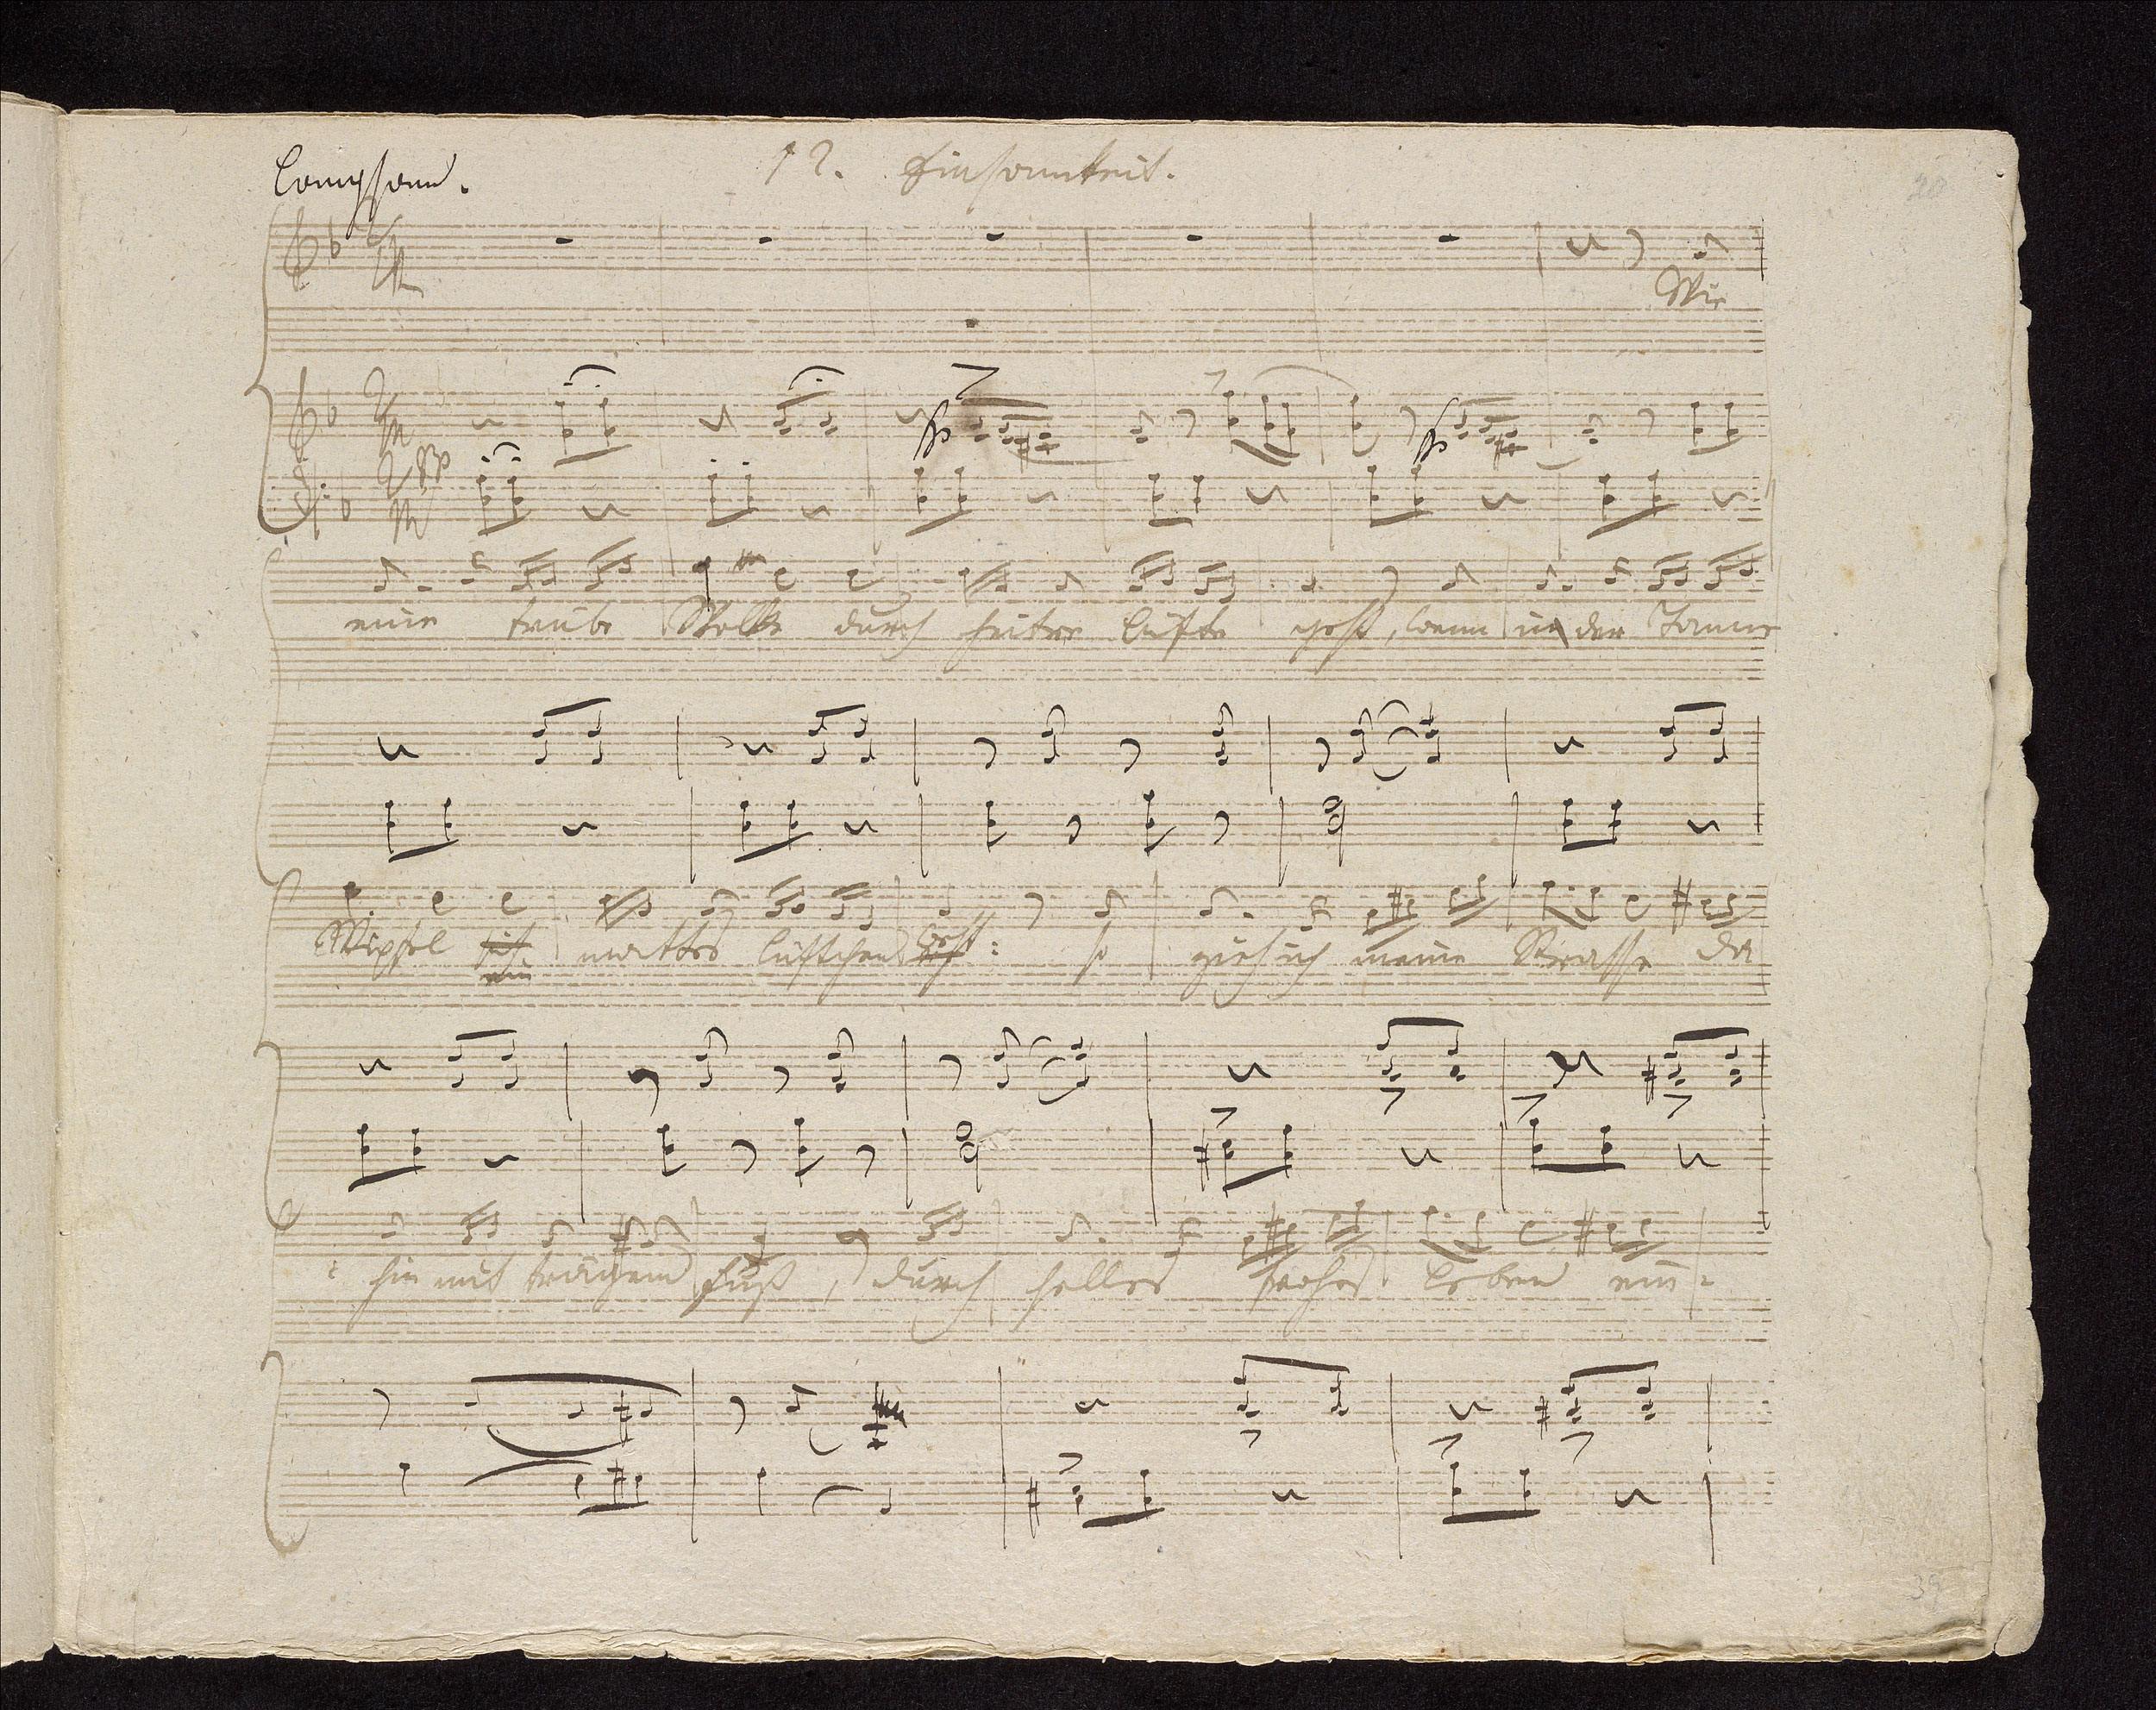 Langsam. 12. Einsamkeit.
20
Wie
pp
eine trübe Wolke durch heitre Lüfte geht, wenn in der Tanne
Wipfel ein mattes Lüftchen weht: so zieh ich meine Strasse da
hin mit trägem Fuß, durch helles frohes Leben ein=
39